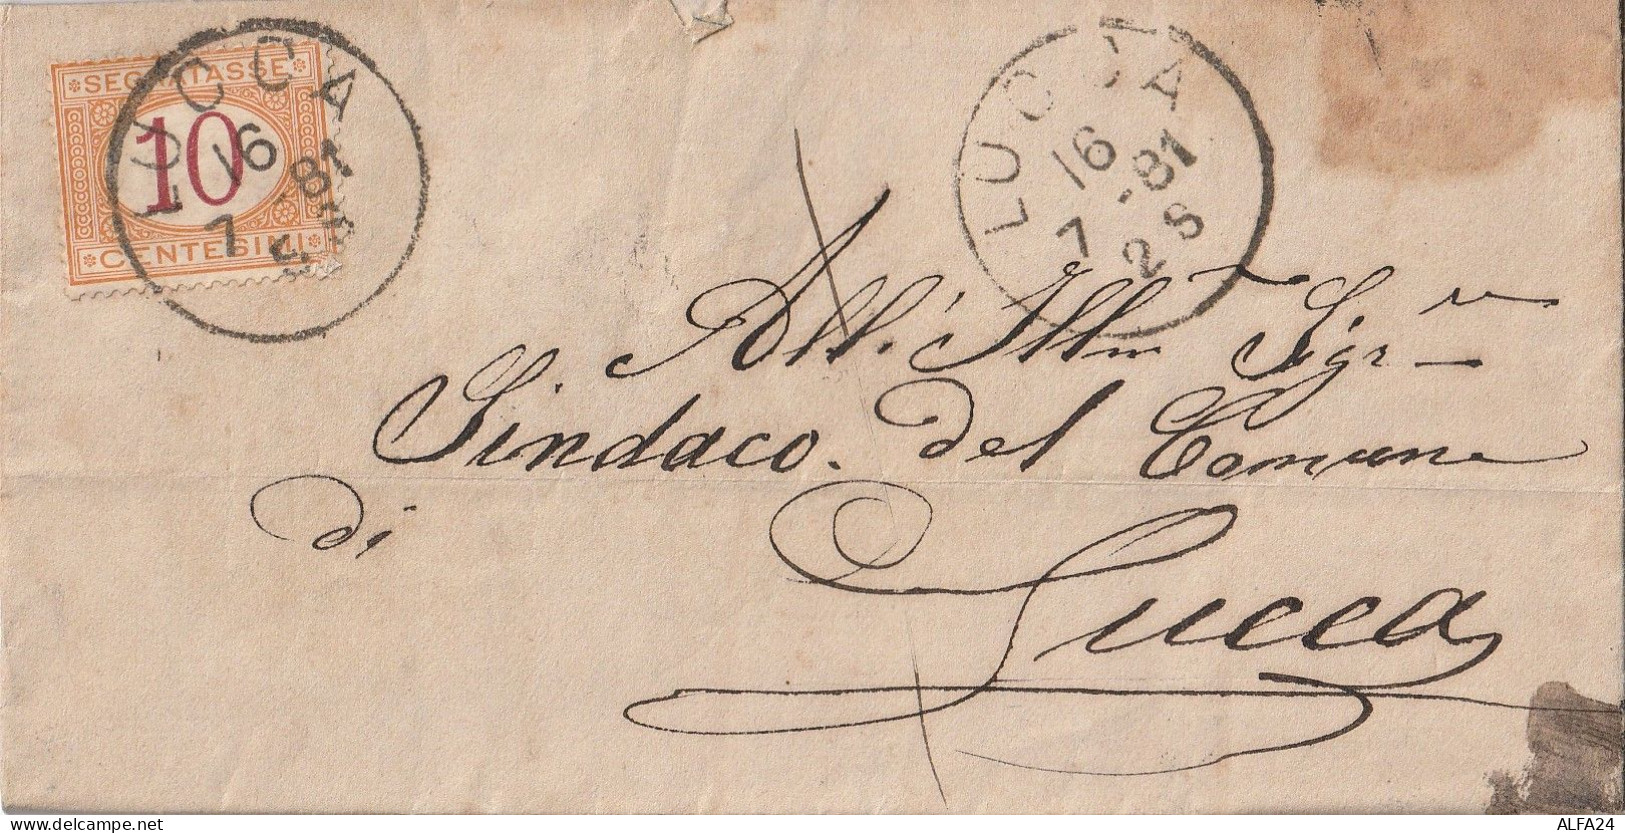 SEGNATASSE
10
CENTESIMI
LUCCA
16
7 -81
LUCCA
16
7 -81
2 S
All' Illm Sigr
Sindaco del Comune
di
Lucca
delcampe.net
ALFA24